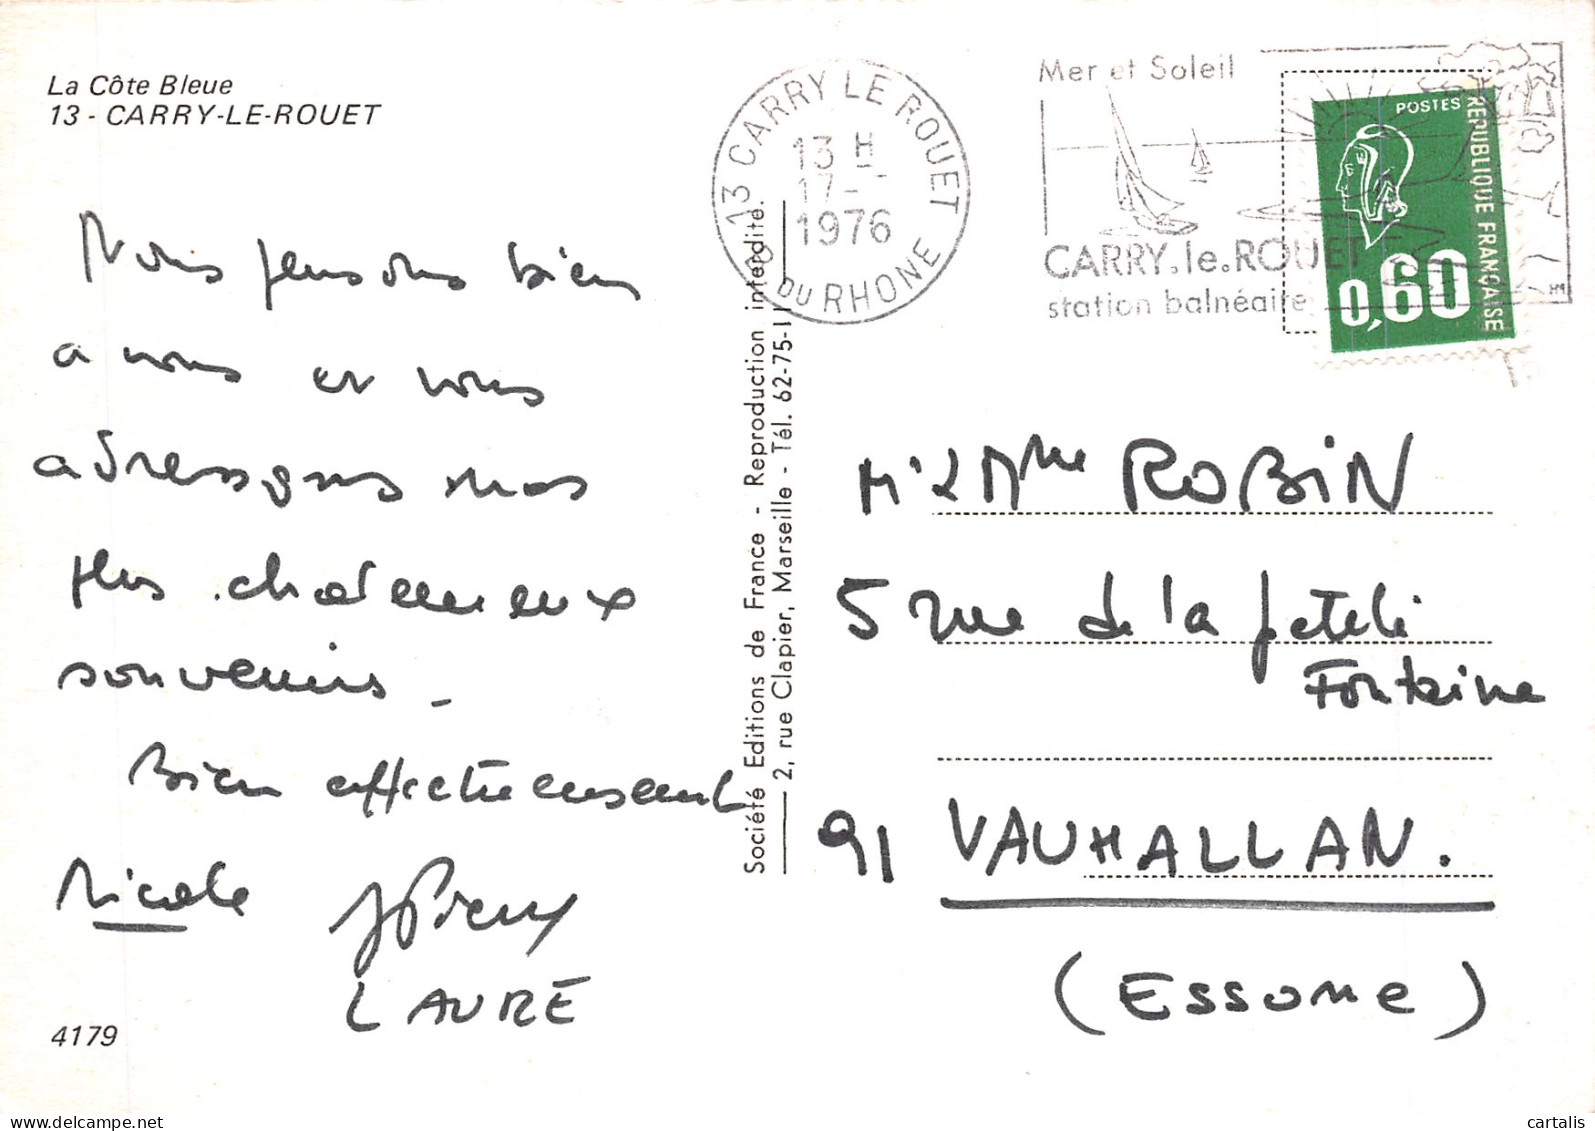 La Côte Bleue
13 - CARRY-LE-ROUET
Nous pensons bien
a vous et vous
adressons nos
plus chaleureux
souvenirs _
Bien affectueusement
Nicole JPierre
LAURE
4179
Société Editions de France - Reproduction interdite.
2, rue Clapier, Marseille - Tél. 62-75-11
13 CARRY LE ROUET
13 H
17 -
1976
B. DU RHONE
Mer et Soleil
CARRY.le.ROUET
station balnéaire
POSTES
REPUBLIQUE FRANÇAISE
0,60
Mr & Mme ROBIN
5 rue de la petite
Fontaine
91 VAUHALLAN.
(Essonne)
delcampe.net
cartalis